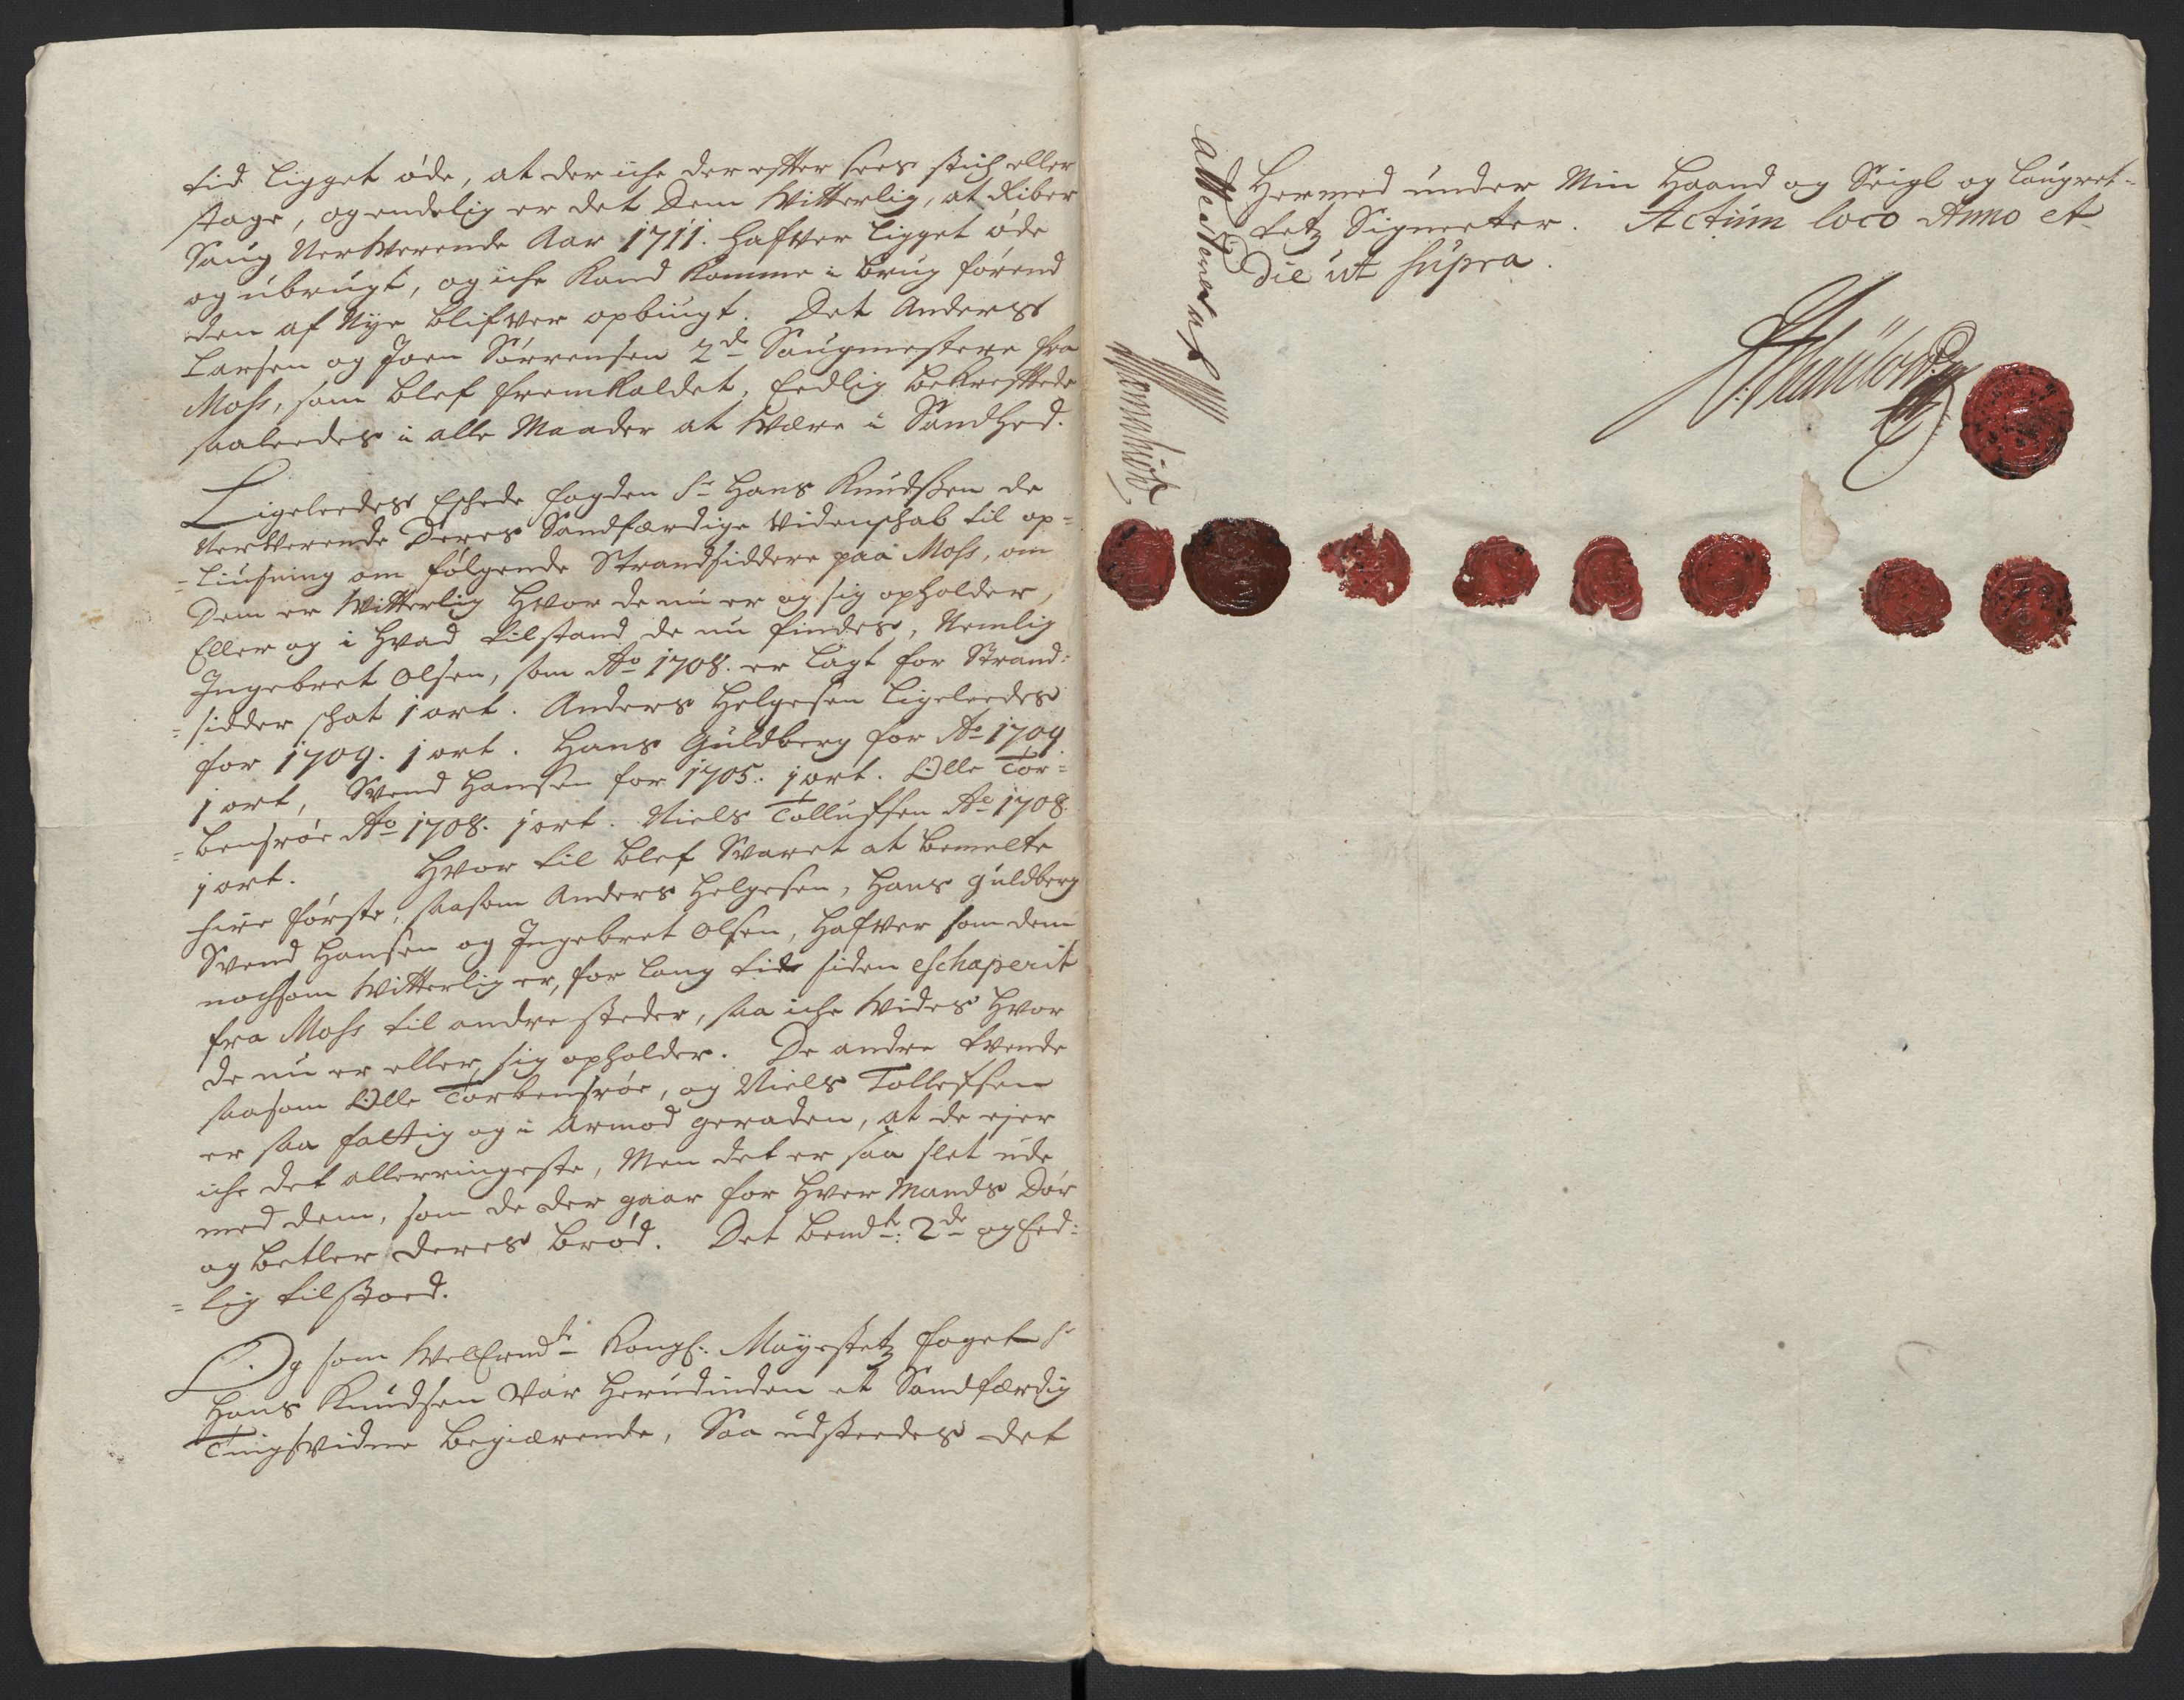 tid ligget øde, at der iche der efter sees stich eller
stage, og endelig er det Dem Witterlig, at Riber
Saug Nerwerende Aar 1711. hafver ligget øde
og ubrugt, og iche Kand Komme i brug førend
den af Nye blifver opbiugt. Det Anders
Larsen og Joen Sørrensen 2de Saugmestere fra
Moss, som blef fremkaldet, Eedlig bekrefttede
saaleedes i alle Maader at Være i Sandhed.
Ligeleedes Eschede fogden Sr Hans Knudssen de
Nerverende Deres Sandfærdige Videnschab til op-
-liusning om følgende Strandsiddere paa Moss, om
Dem er Witterlig hvor de nu er og sig opholder,
Eller og i hvad tilstand de nu findes, Nemlig
Ingebret Olsen, som Ao 1708. er lagt for Strand-
-sidder schat 1 ort. Anders Helgesen ligeleedes
for 1709. 1 ort. Hans Guldberg for Ao 1709
1 ort, Svend Hansen for 1705. 1 ort. Olle Tor-
-bensrøe Ao 1708. 1 ort. Niels Tollufsen Ao 1708.
1 ort. Hvor til blef Svaret at bemelte
fire første, saasom Anders Helgesen, Hans Guldberg
Svend Hansen og Ingebret Olsen, hafver som dem
nochsom Witterlig er, for lang tid siden eschaperit
fra Moss til andre steder, saa iche Wides hvor
de nu er eller sig opholder. De andre tvende
saasom Olle Torbensrøe, og Niels Tollefsen
er saa fattig og i Armod geraden, at de ejer
iche det allerringeste, Men det er saa slet ude
med dem, som de der gaar for hver Mands Dør
og betler deres brød. Det bemdte 2de og Eed-
-lig tilstoed.
Og som WelErmdte Kongl: Mayestetz foget Sr
Hans Knudsen var herudinden et Sandfærdig
Tingsvidne begiærende, Saa udsteedes det
Hermed under Min Haand og Seigl og laugret-
tetz Signeter. Actum loco Anno et
Die ut supra.
attesterer af